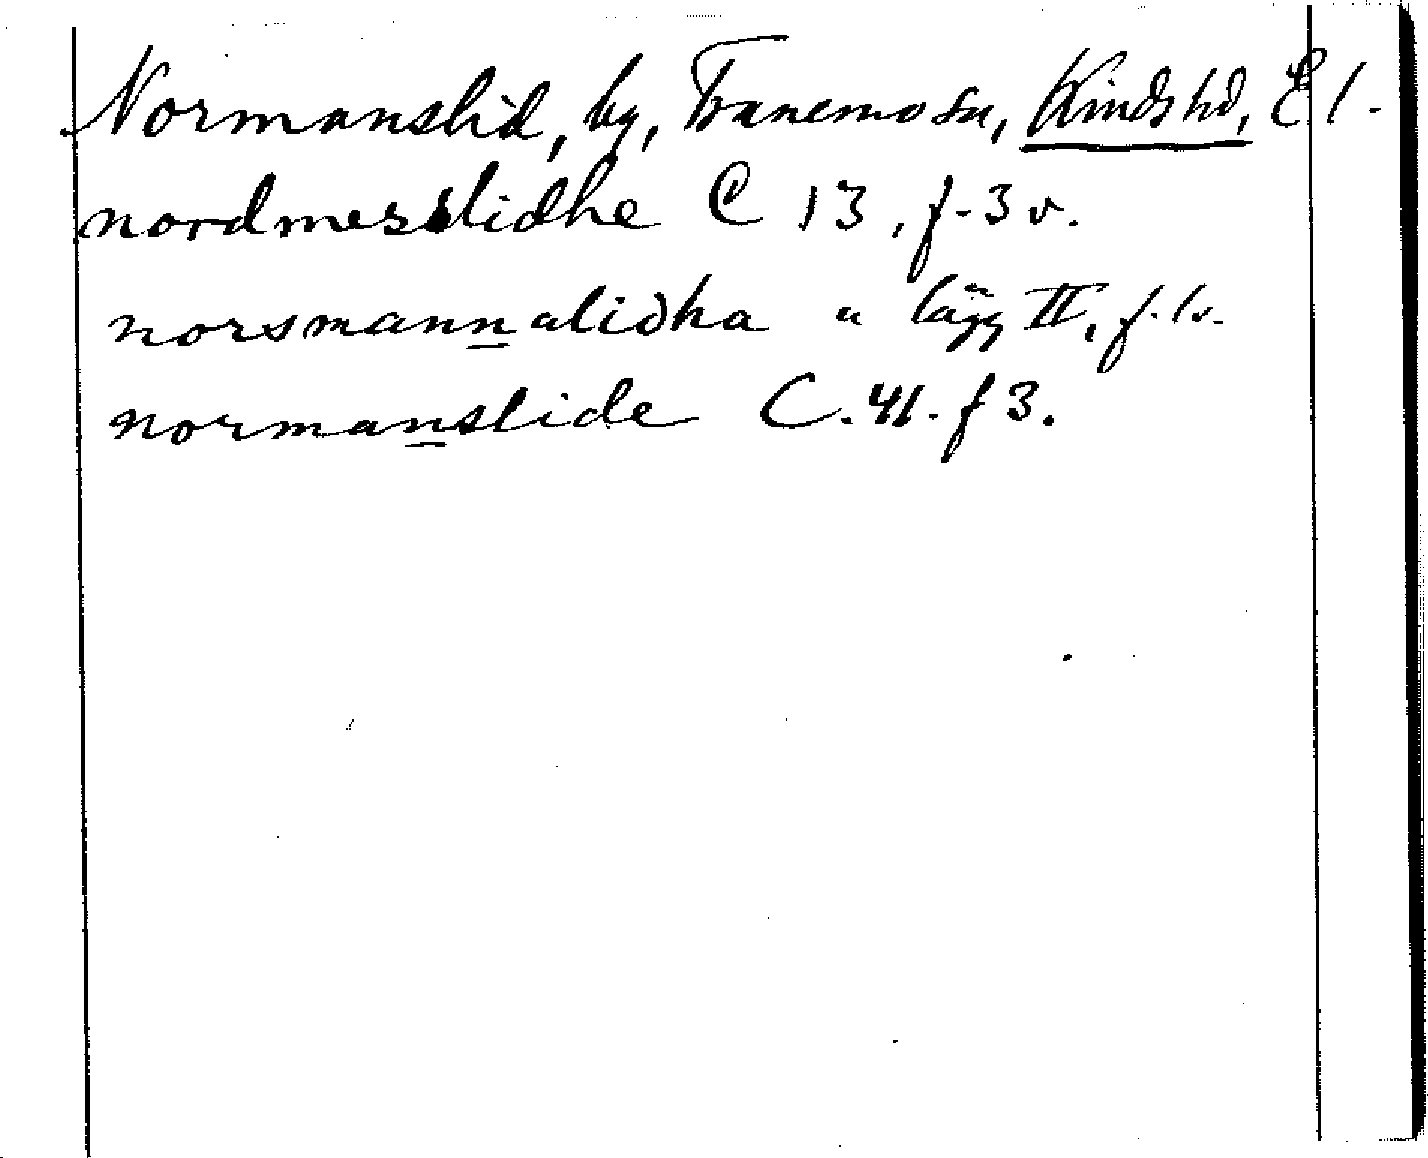 Normanslid, by, Tranemo sn, Kinds hd, Äl.
nordmesslidhe C 13, f. 3 v.
norsmannalidha " lägg II, f. 1v.
normanslide C. 41. f 3.